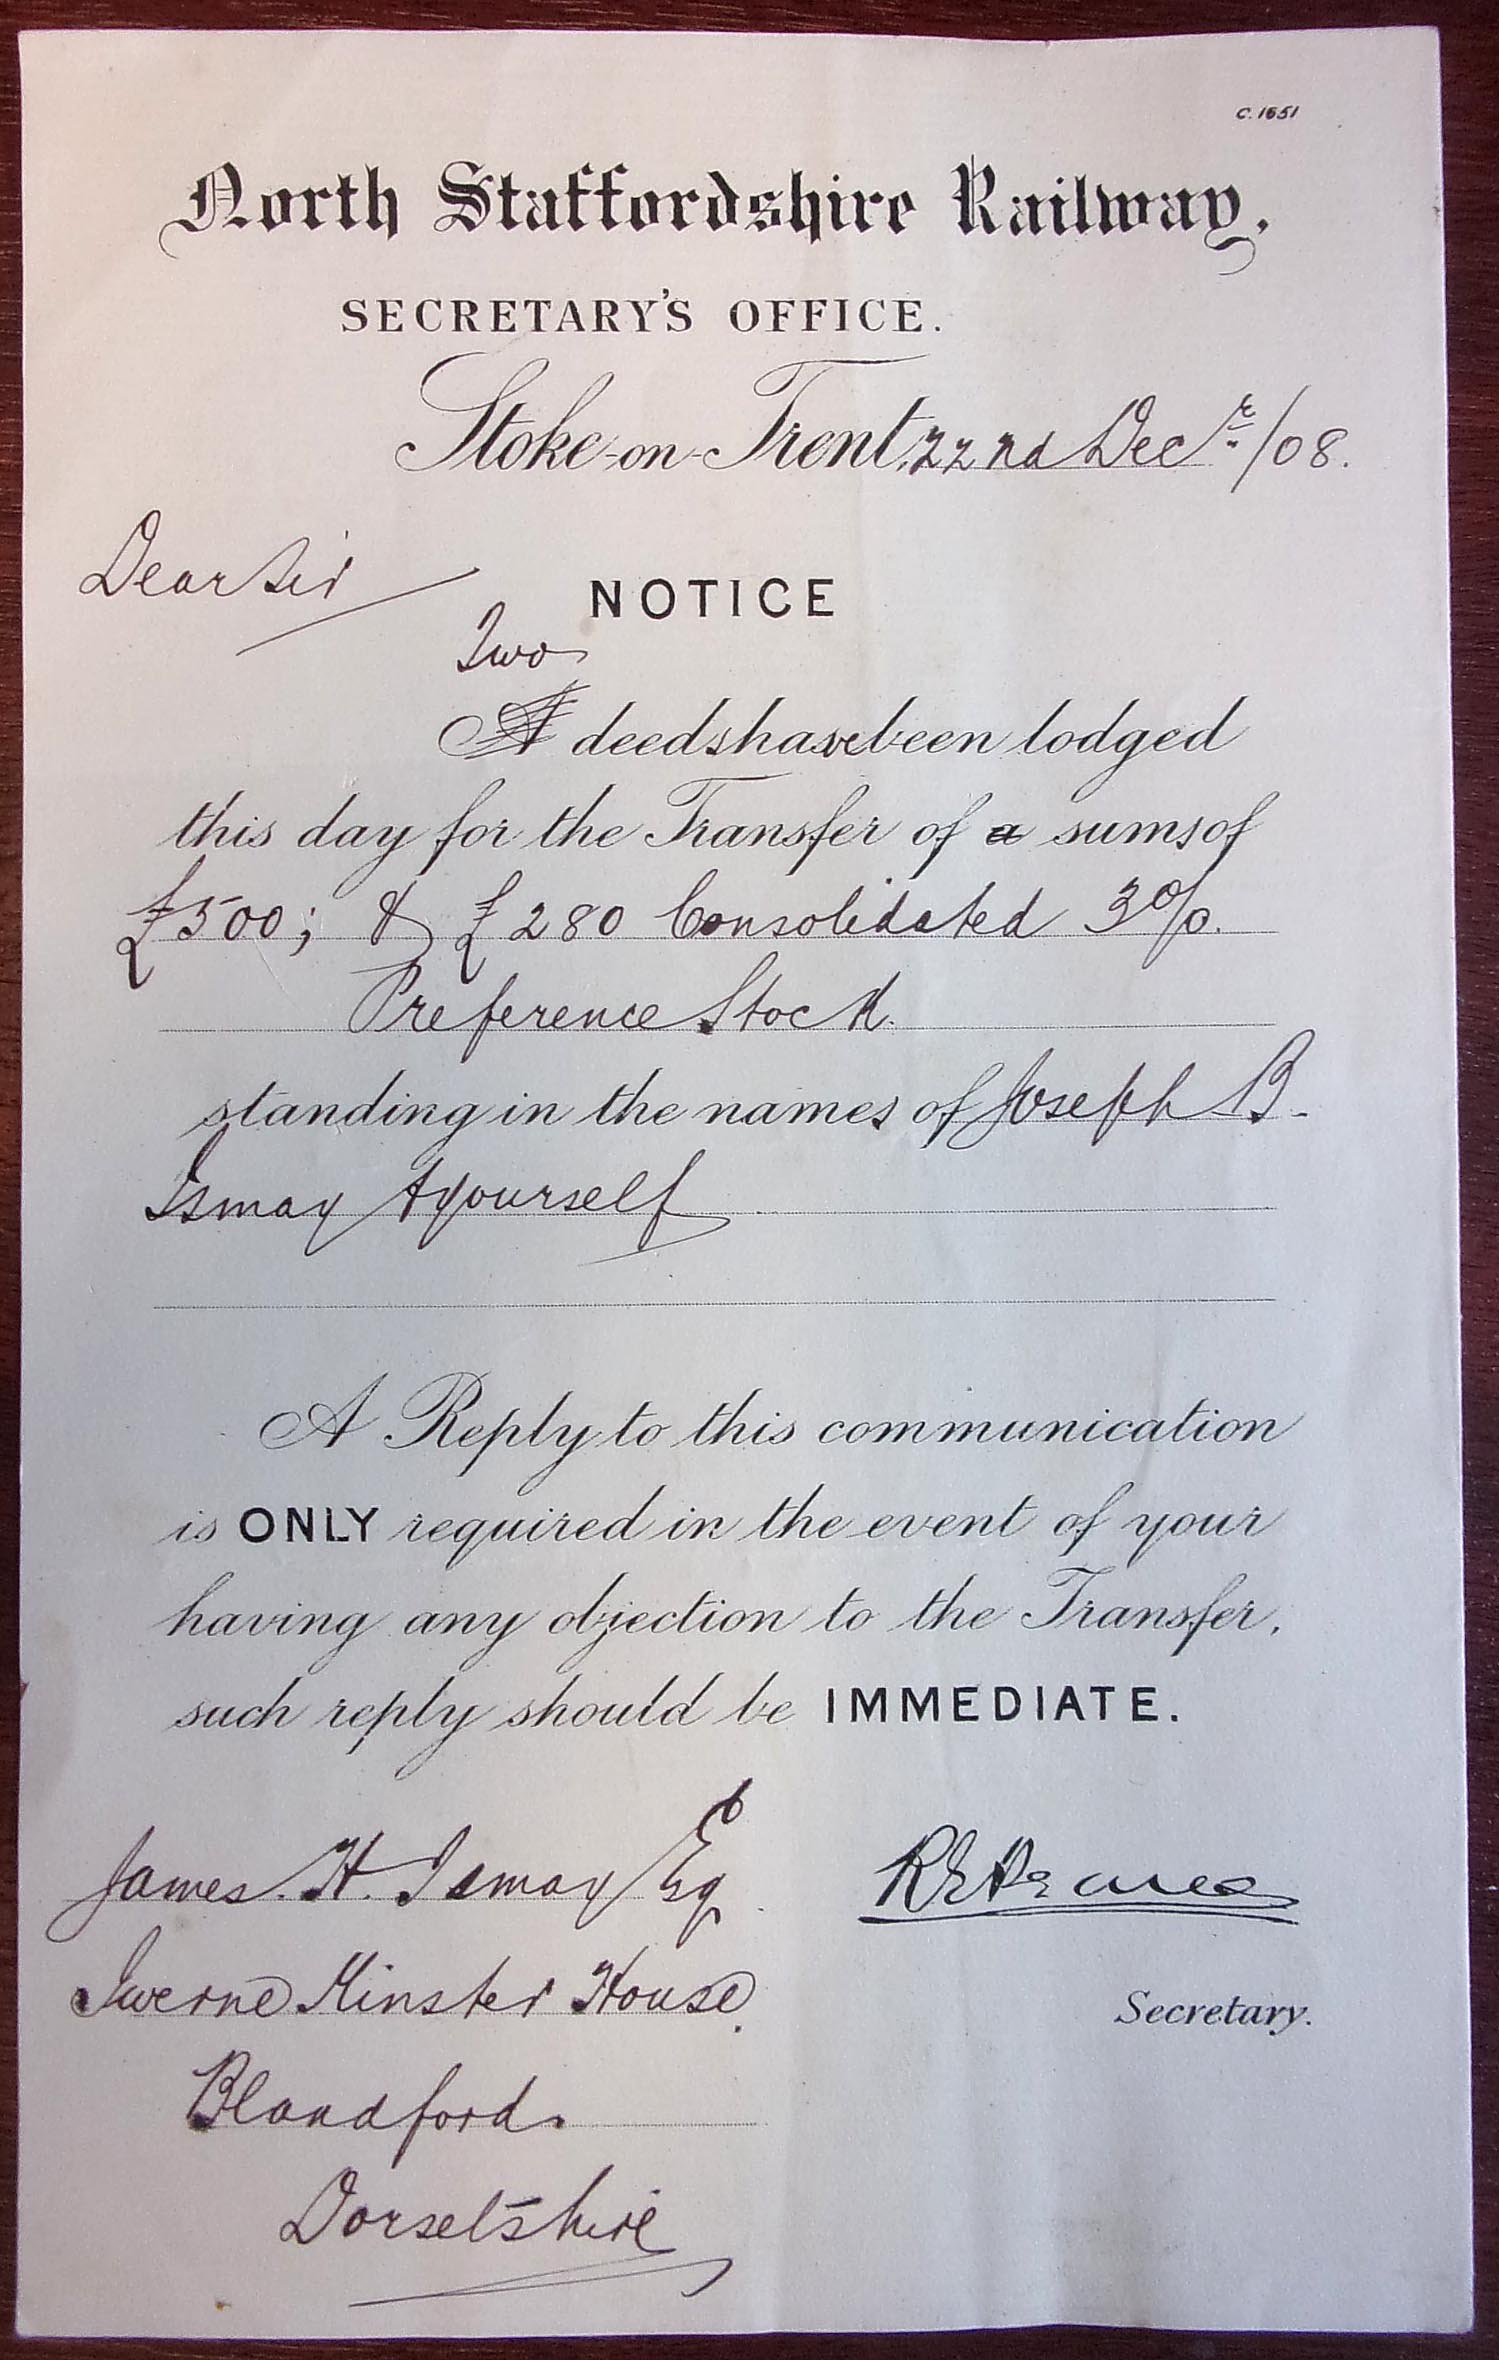 C. 1651
North Staffordshire Railway.
SECRETARY'S OFFICE.
Stoke-on-Trent, 22nd Decr/08.
Dear Sir
NOTICE
Two
A deeds have been lodged
this day for the Transfer of a sums of
£500; & £280 Consolidated 3%.
Preference Stock.
standing in the names of Joseph B.
Ismay & yourself
A Reply to this communication
is ONLY required in the event of your
having any objection to the Transfer.
such reply should be IMMEDIATE.
James. H. Ismay Esq
R E Pearce
Iwerne Minster House.
Secretary.
Blandford.
Dorsetshire